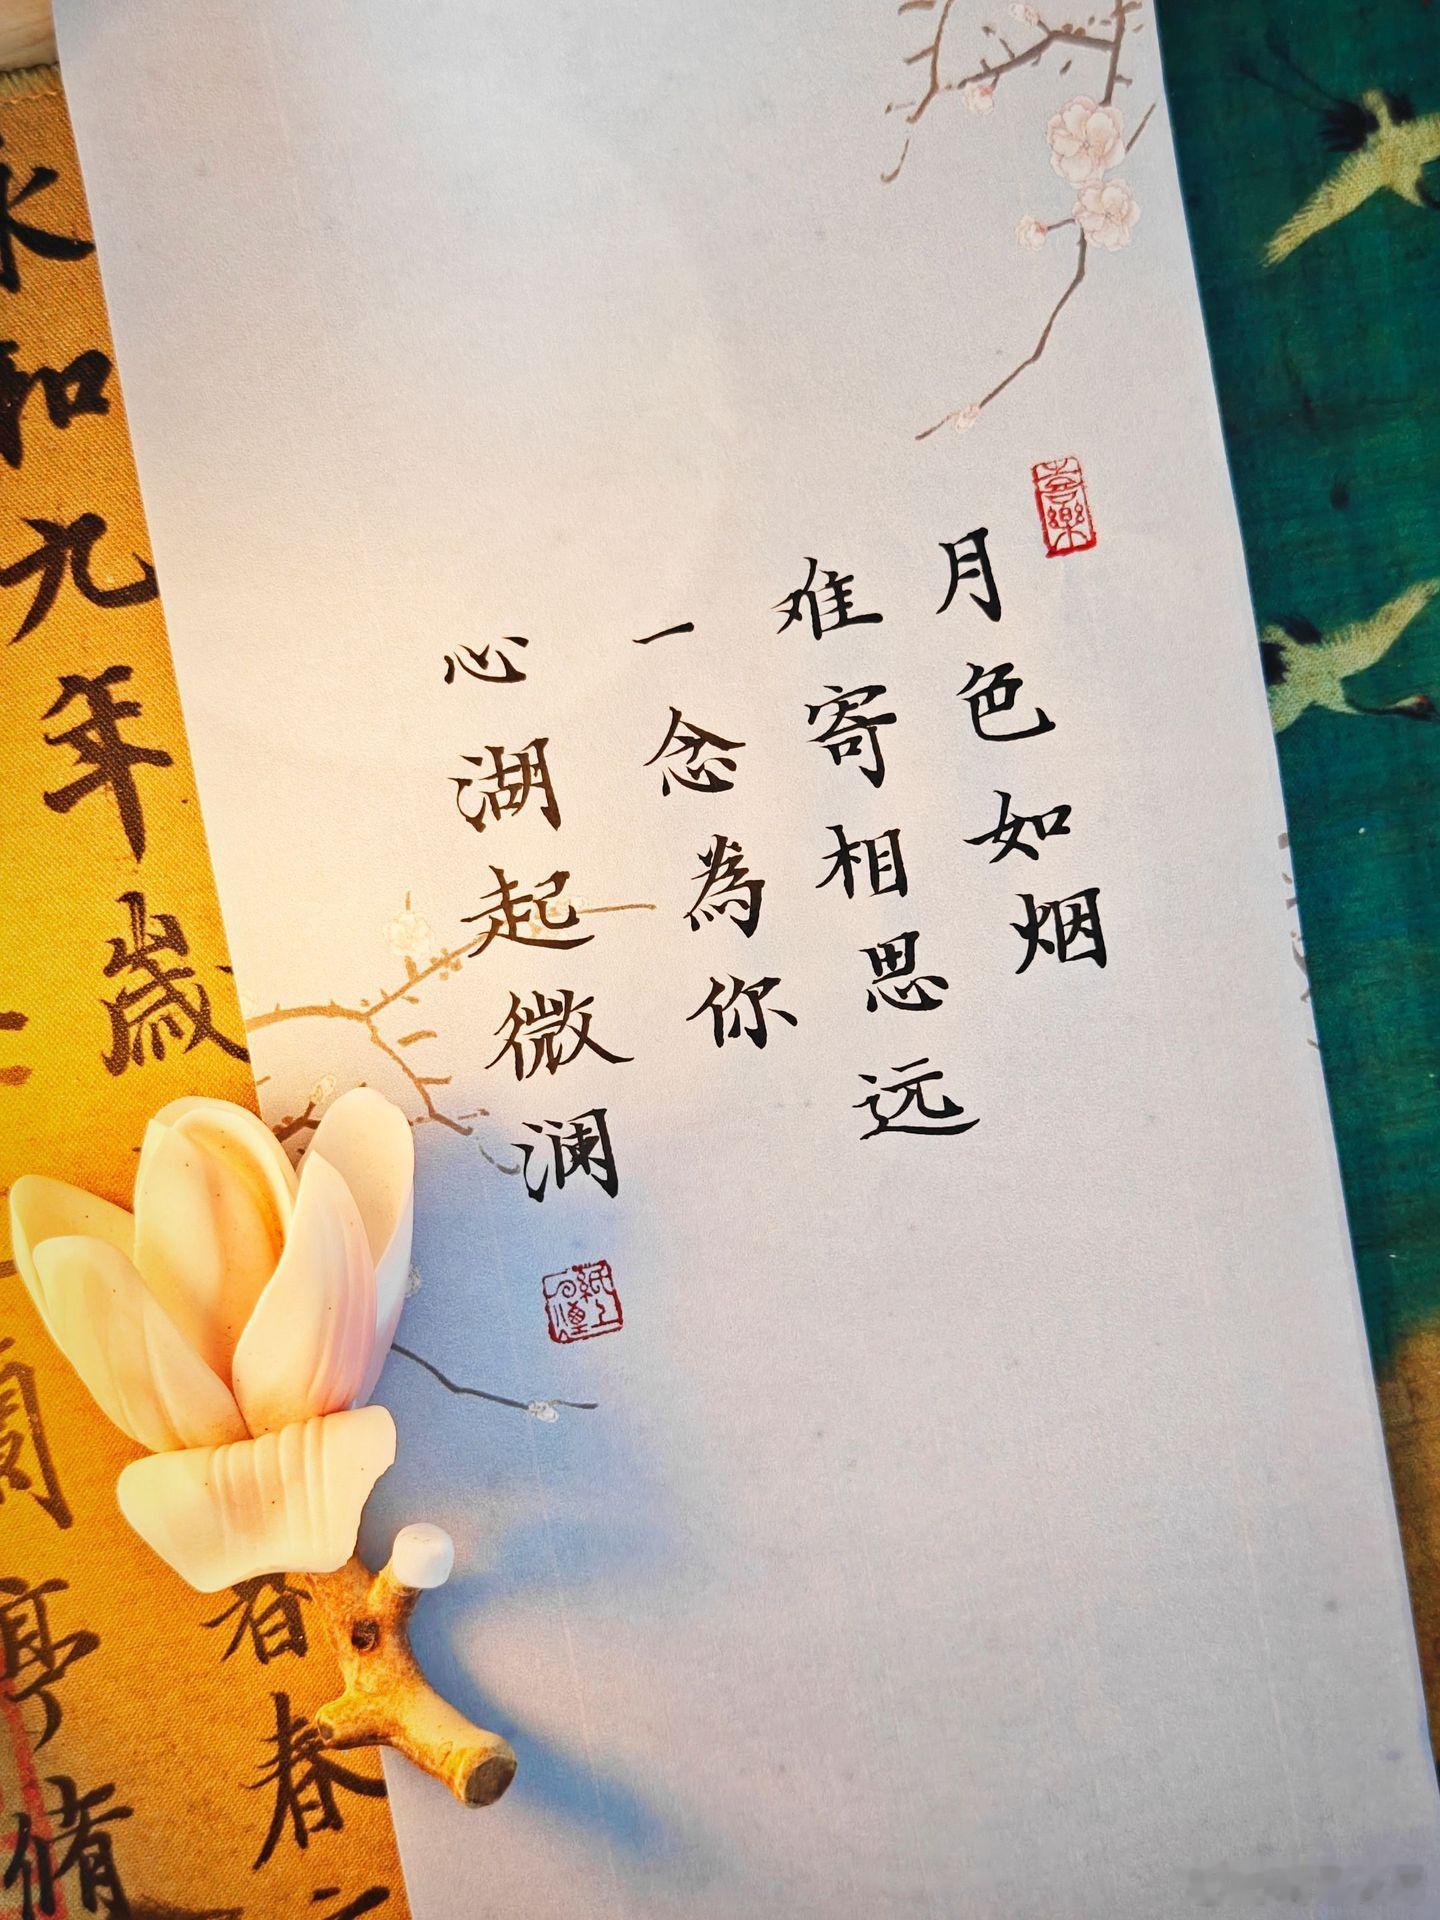 喜樂
月色如烟
难寄相思远
一念為你
心湖起微澜
永和九年歲
蘭亭脩
春